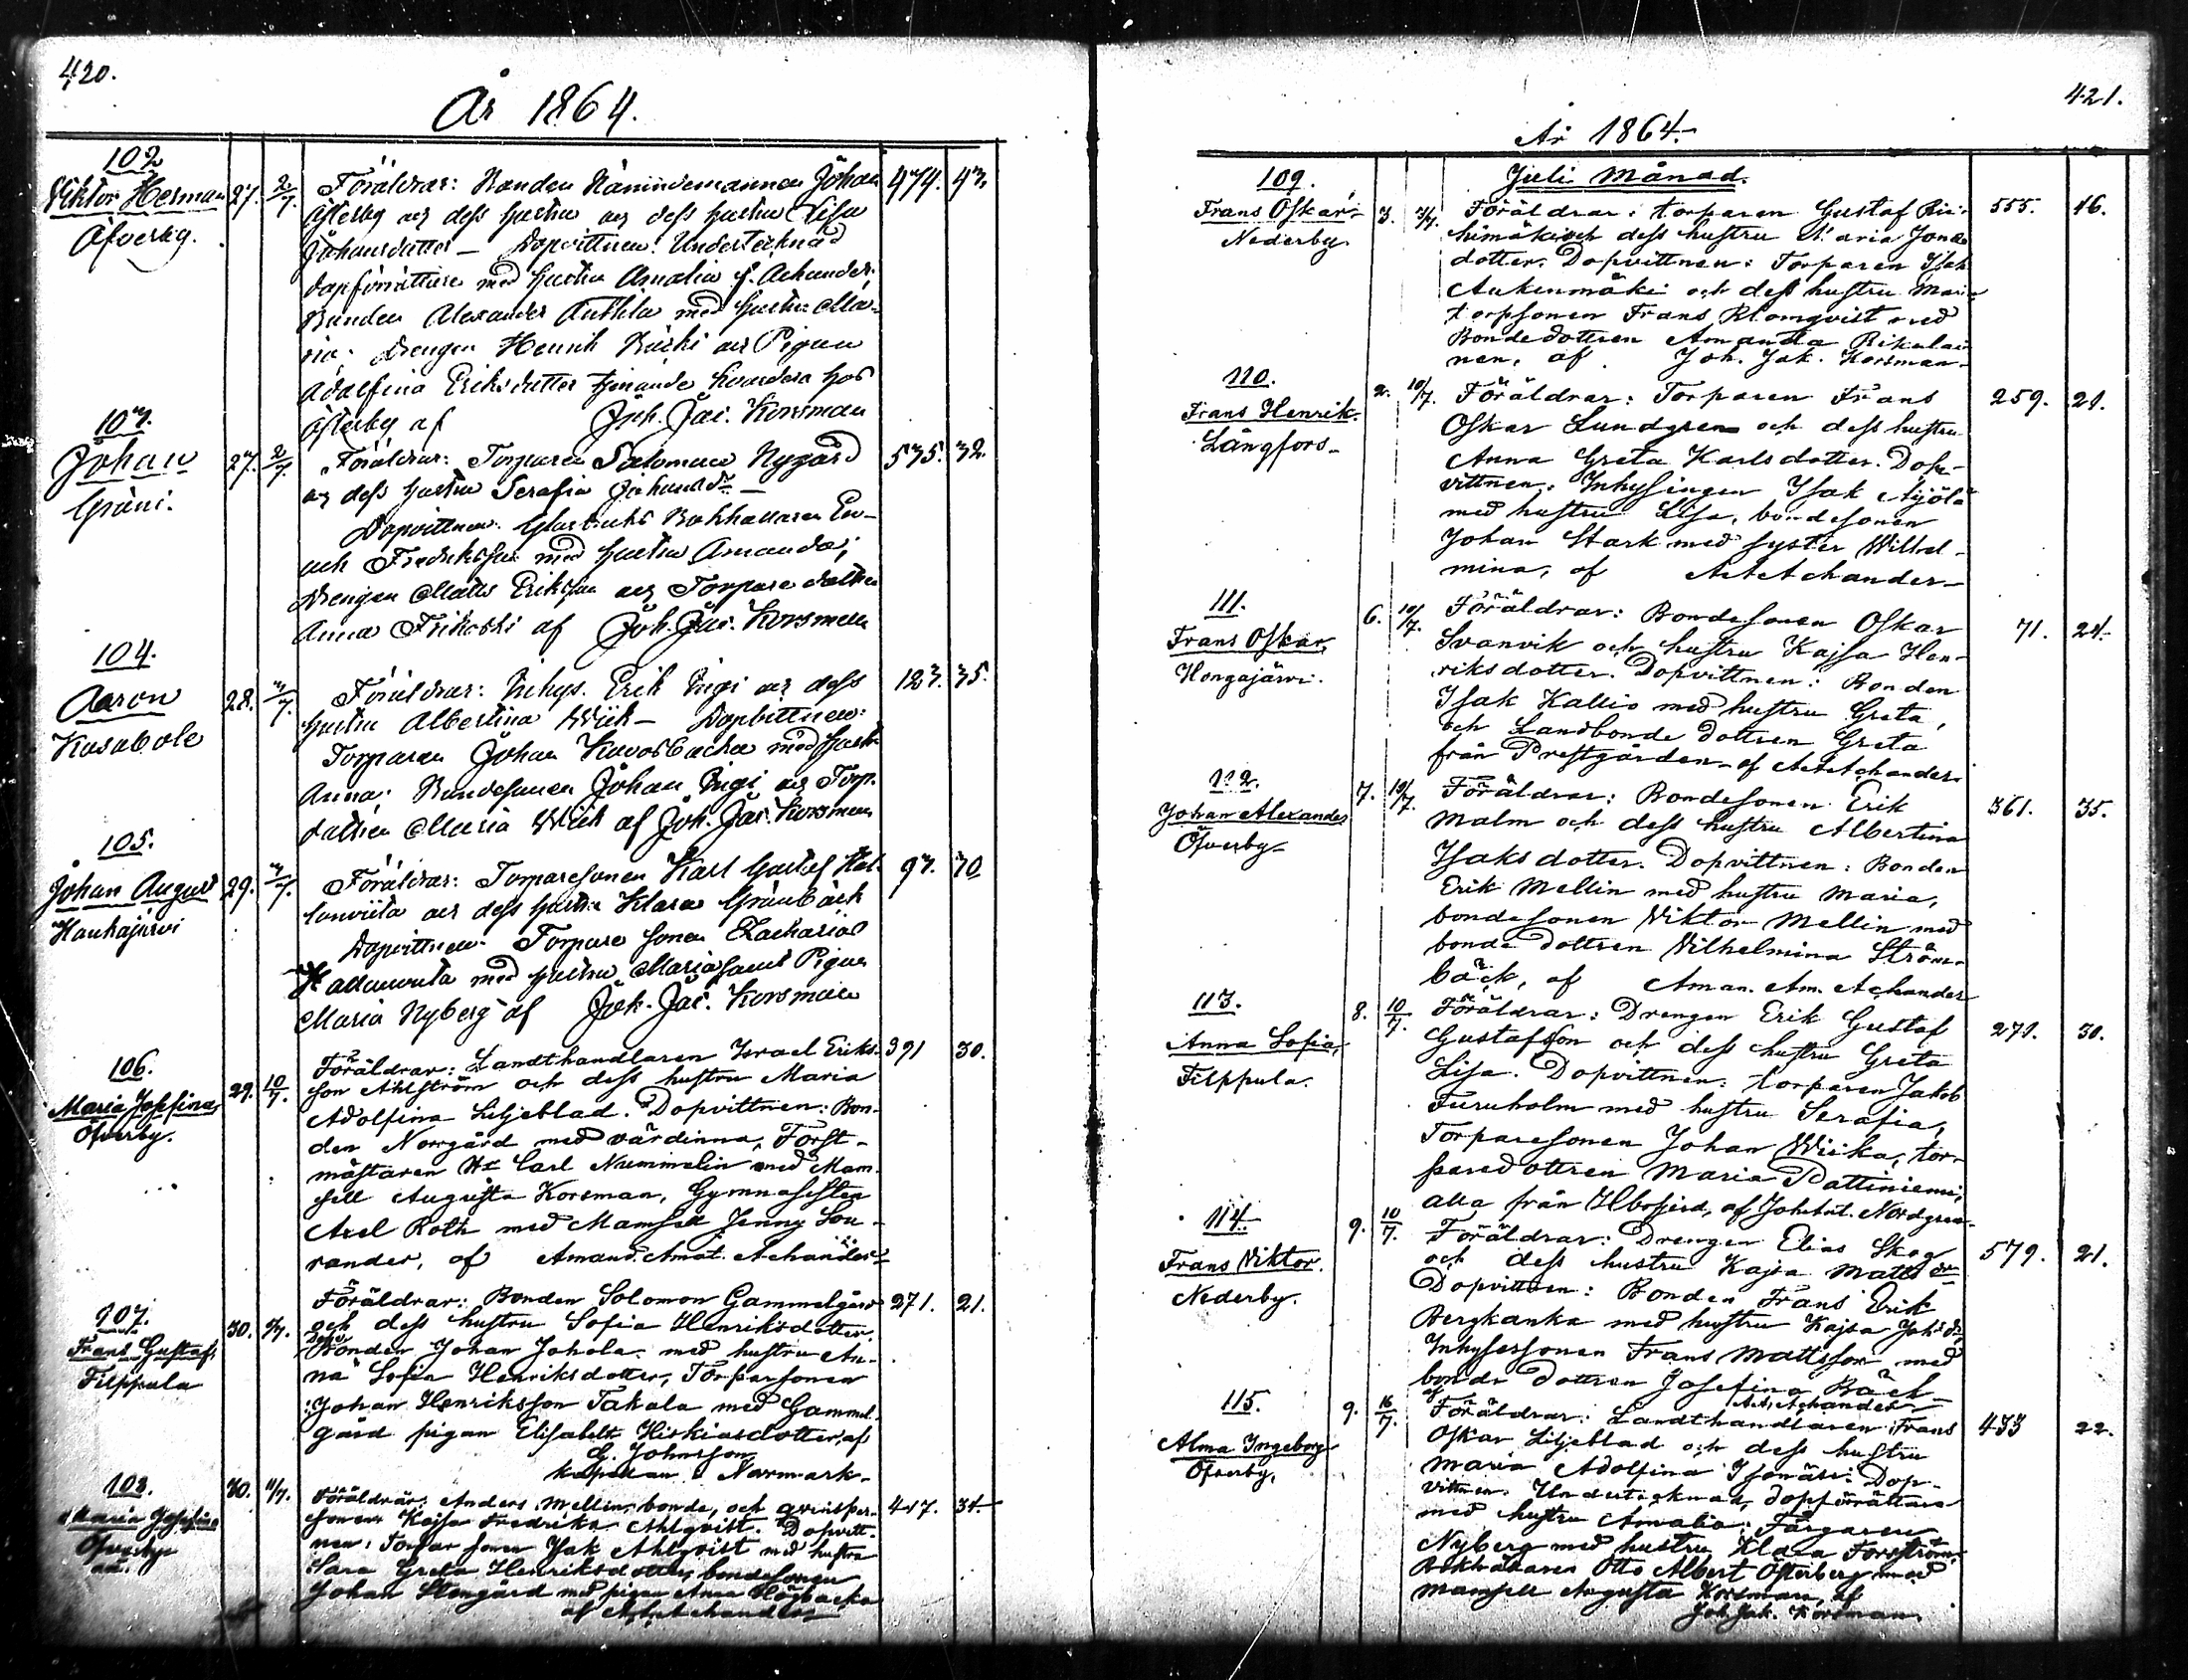 420.
År 1864.
102
Viktor Herman 27. 2/7. Föräldrar: Bonden Nämndemannen Johan 474. 43.
Öfverby. Österby och dess hustru och dess hustru Lisa
Johansdotter — Dopvittnen: Undertecknad
dopförrättare med hustru Amalia f. Achander;
Bonden Alexander Anttila med hustru Ma-
ria; Drengen Henrik och Pigan
Adolfina Eriksdotter tjenande hos
Österby af Joh. Jac. Korsman
103.
Johan 27. 2/7. Föräldrar: Torparen Salomon Nygård 535. 32.
Gräni. och dess hustru Serafia Johansdr —
Dopvittnen: Glasbruks Bokhållaren En-
och Fredriksson med hustru Amanda;
Drengen Matts Eriksson och Torpare dottren
Anna af Joh. Jac. Korsman
104.
Aaron 28. 3/7. Föräldrar: Inhys. Erik och dess 123. 35.
Kasabole hustru Albertina Wiik — Dopvittnen:
Torparen Johan med hustru
Anna; Bondesonen Johan och Torp.
dottren Maria Wiik af Joh. Jac. Korsman
105.
Johan August 29. 3/7. Föräldrar: Torparesonen Karl Gustaf Hal- 93. 30
Haukajärvi lanviita och dess hustru Klara Grönbäck
Dopvittnen: Torpare sonen Zacharias
Hallanviita med hustru Maria samt Pigan
Maria Nyberg af Joh. Jac. Korsman
106.
Maria Josefina 29. 10/7. Föräldrar: Landthandlaren Israel Eriks- 391 30.
Öfverby. son Ahlström och dess hustru Maria
Adolfina Liljeblad. Dopvittnen: Bon-
den Norrgård med värdinna, Forst-
mästaren Hr Carl Nummelin med Mam-
sell Augusta Korsman, Gymnasisten
Axel Roth med Mamsell Jenny Son-
rander, af Amand. Amat. Achander
107.
Frans Gustaf 30. 3/7. Föräldrar: Bonden Solomon Gammelgård 271. 21.
Filppula och dess hustru Sofia Henriksdotter.
Bonden Johan Johola med hustru An-
na Sofia Henriksdotter, Torparsonen
Johan Henriksson Takala med Gammel-
gård pigan Elisabeth Hiskiasdotter, af
G. Johnsson
kapellan i Norrmark
108.
Maria Josefina 30. 11/7. Föräldrar: Anders Mellin, bonde, och qvinsper- 447. 34
Öfverby sonen Kajsa Fredrika Ahlqvist. Dopvitt-
nen: Torpar sonen Isak Ahlqvist med hustru
Sara Greta Henriksdotter, bondesonen
Johan Stengård med pigan Anna Högbacka
af A. A. Achander
421.
År 1864.
Juli Månad.
109.
Frans Oskar 3. 3/7. Föräldrar: torparen Gustaf Rii- 555. 46.
Nederby himäki och dess hustru Maria Jonas
dotter. Dopvittnen: Torparen Isak
Aukenmäki och dess hustru Maria
torpsonen Frans Blomqvist med
Bondedottren Amanda Rikalai-
nen, af Joh. Jak. Korsman
110.
Frans Henrik 2. 10/7. Föräldrar: Torparen Frans 259. 21.
Långfors Oskar Lundgren och dess hustru
Anna Greta Karlsdotter. Dop-
vittnen: Inhysingen Isak
med hustru Lisa, bondesonen
Johan Stark med syster Wilhel-
mina, af A. A. Achander
111.
Frans Oskar 6. 10/7. Föräldrar: Bondesonen Oskar 71. 24.
Hongajärvi. Svanvik och hustru Kajsa Hen-
riksdotter. Dopvittnen: Bonden
Isak Kallio med hustru Greta,
och Landbonde dottren Greta
från Prestgården af A. A. Achander
112.
Johan Alexander 7. 10/7. Föräldrar: Bondesonen Erik 361. 35.
Öfverby Malm och dess hustru Albertina
Isaksdotter. Dopvittnen: Bonden
Erik Mellin med hustru Maria,
bondesonen Viktor Mellin med
bonde dottren Vilhelmina Ström-
bäck, af Aman. Am. Achander
113.
Anna Sofia 8. 10/7. Föräldrar: Drengen Erik Gustaf 271. 30.
Filppula. Gustafsson och dess hustru Greta
Lisa. Dopvittnen: torparen Jakob
Furuholm med hustru Serafia,
Torparesonen Johan Wiika, tor-
paredottren Maria Pattiniemi,
alla från af Joh. Nordgren
114
Frans Viktor. 9. 10/7. Föräldrar: Drengen Elias Skog 579. 21.
Nederby. och dess hustru Kajsa Mattsdr
Dopvittnen: Bonden Frans Erik
Bergkanka med hustru Kajsa Johsdr,
Inhysessonen Frans Mattsson med
bonde dottren Josefina Bäck
af A. A. Achander
115.
Alma Ingeborg 9. 16/7. Föräldrar: Landthandlaren Frans 433 22.
Öfverby. Oskar Liljeblad och dess hustru
Maria Adolfina Isomäki. Dop-
vittnen: Undertecknad, dopförrättare
med hustru Amalia; Färgaren
Nyberg med hustru Klara Forsström,
Bokhållaren Otto Albert Österberg med
Mamsell Augusta Korsman, af
Joh. Jak. Korsman.